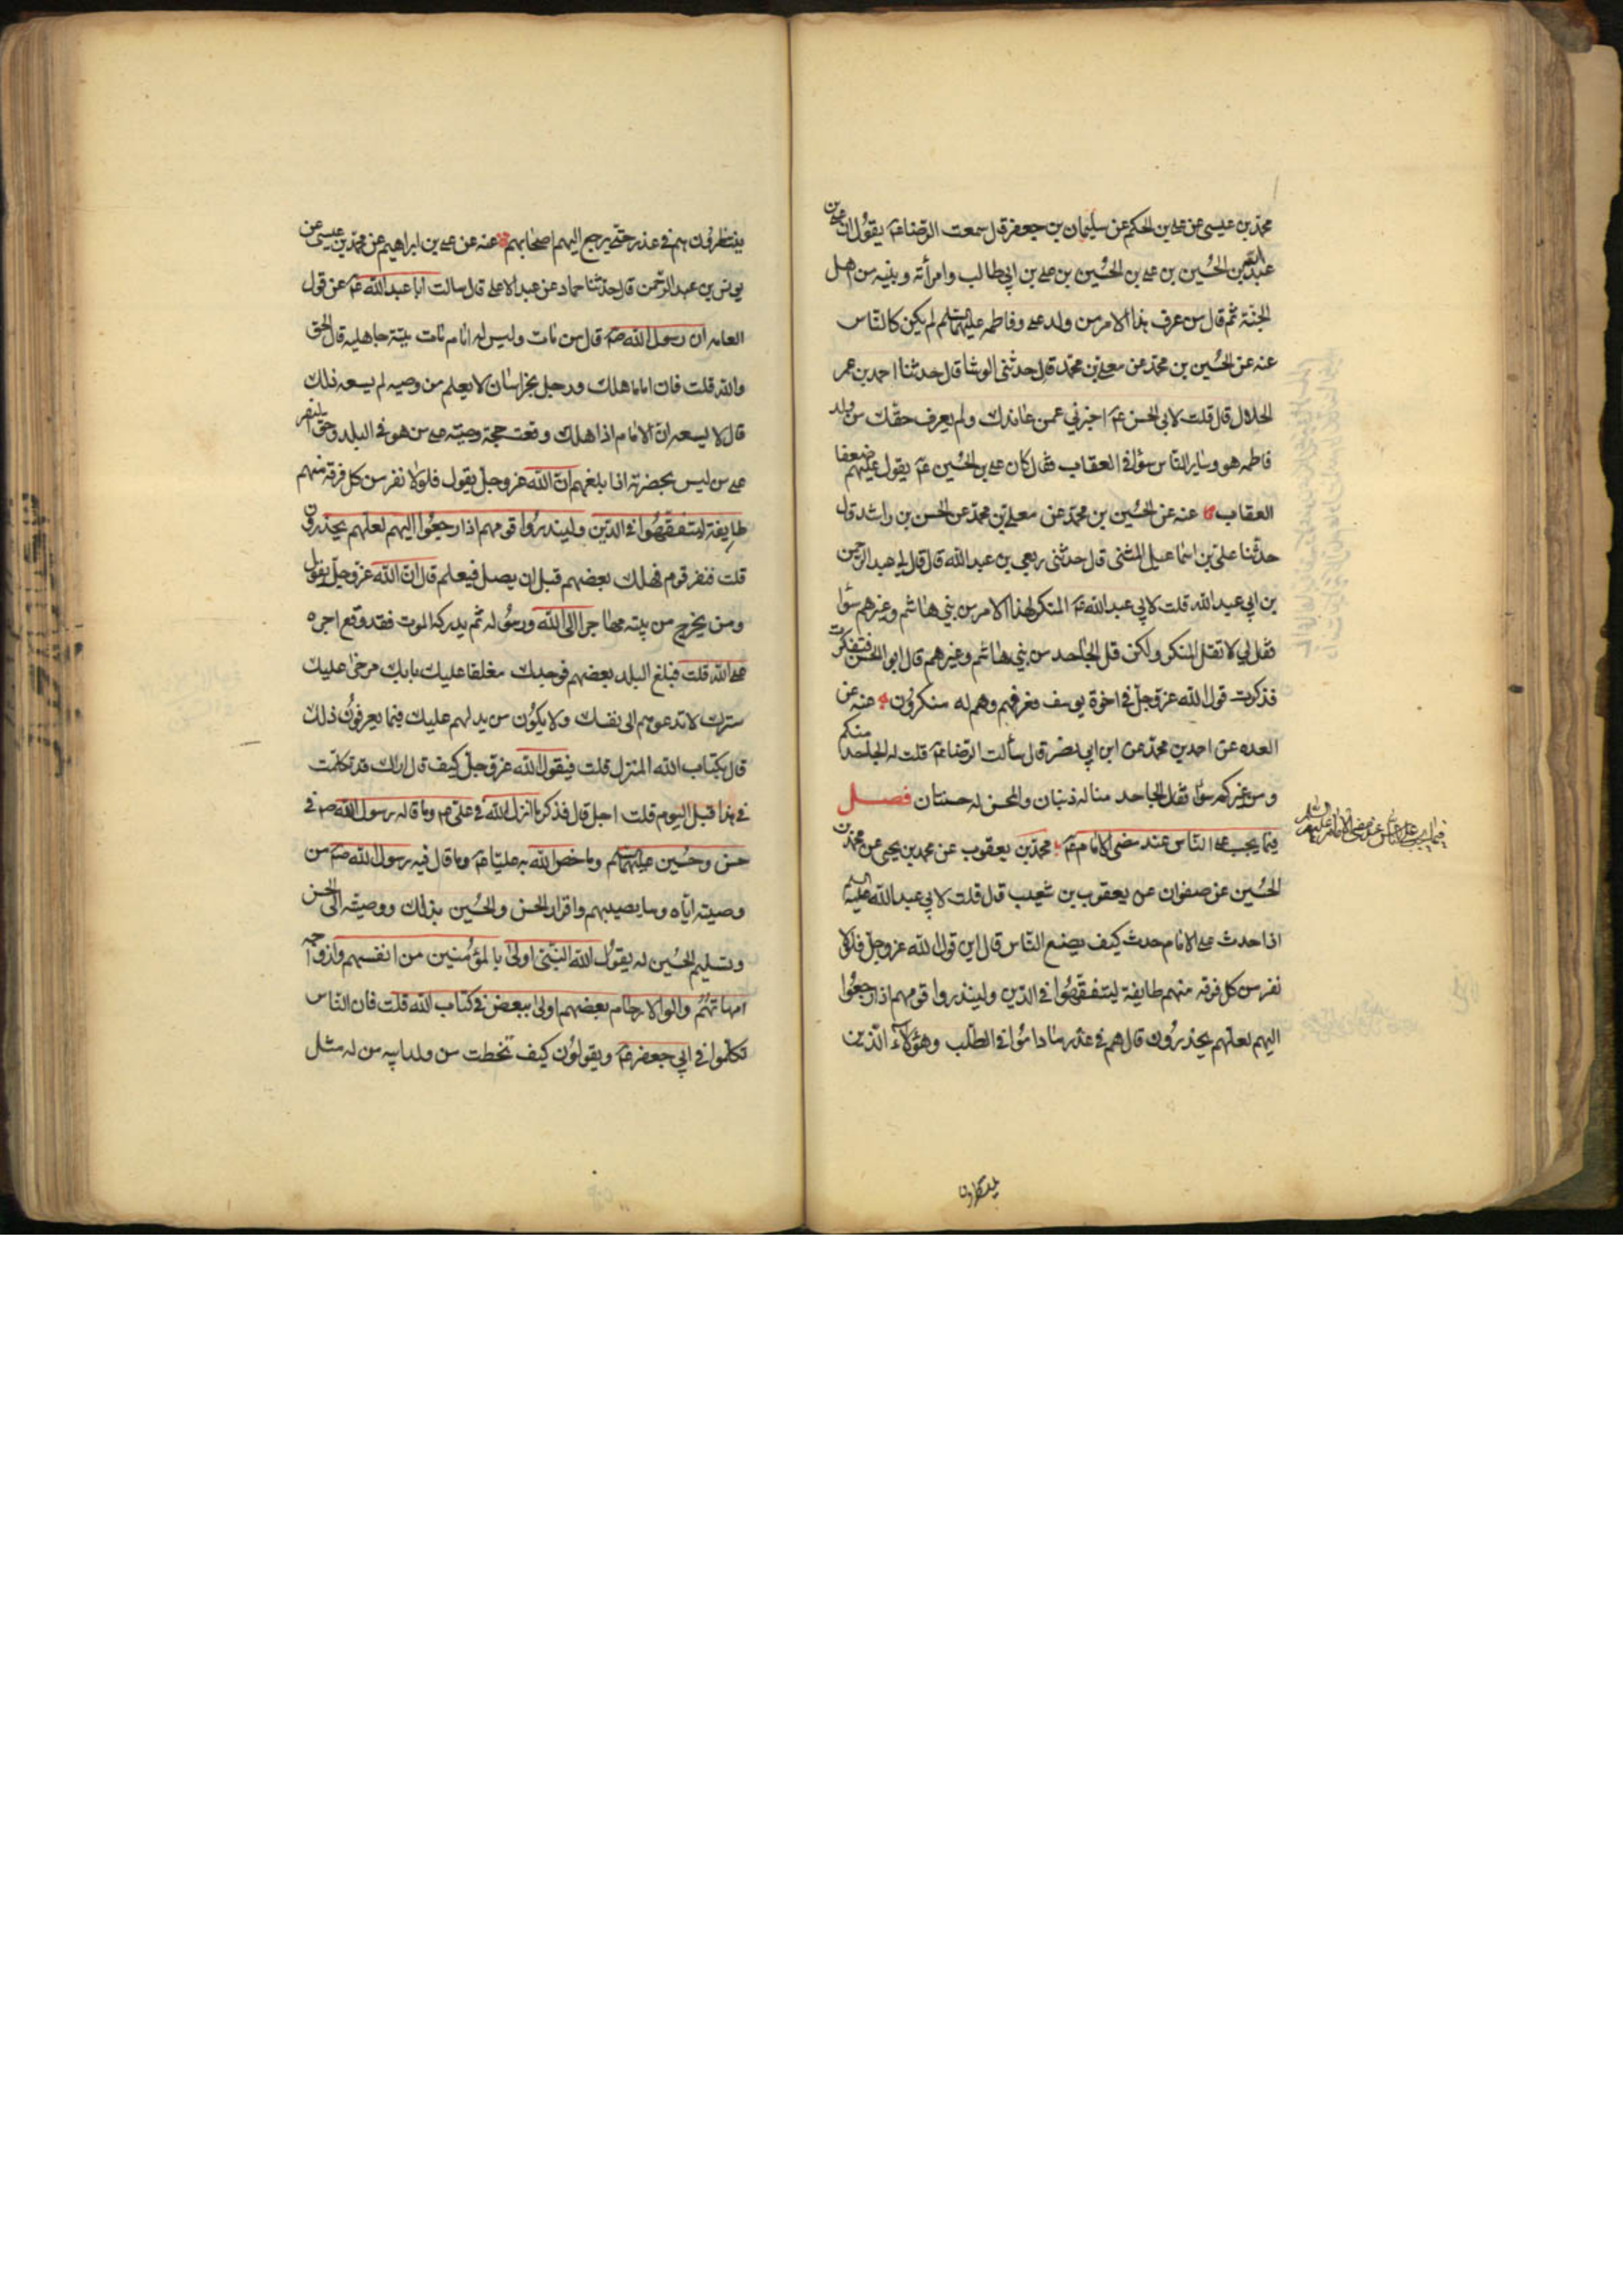 محمد بن عيسى عن علي بن الحكم عن سليمان بن جعفر قال سمعت الرضا عم يقول ان علي بن
عبدالله بن الحُسين بن علي بن الحُسين بن علي بن ابي طالب وامرأته وبنيه من اهل
الجنة ثم قال من عرف هذا الامر من ولد علي وفاطمه عليهما السلم لم يكن كالناس
عنه عن الحُسين بن محمد عن معلى بن محمد قال حدثنى الوشا قال حدثنا احمد بن عمر
الحلال قال قلت لابى الحسن عم اخبرني عمن عاندك ولم يعرف حقك من ولد
فاطمه هو وساير الناس سوا في العقاب فقال كان علي بن الحُسين عم يقول عليهم ضعفا
العقاب عنه عن الحُسين بن محمد عن معلى بن محمد عن الحسن بن راشد قال
حدثنا علي بن اسماعيل الميثمى قال حدثنى ربعي بن عبد الله قال قال لي عبد الرحمن
بن ابي عبد الله قلت لابي عبدالله عم المنكر لهذا الامر من بني هاشم وغيرهم سوا
فقال لي لا تقل المنكر ولكن قل الجاحد من بني هاشم وغيرهم قال ابو الحسن فتفكرت
فذكرت قول الله عز وجل في اخوة يوسف فعرفهم وهم له منكرون عنه عن
العده عن احمد بن محمد عن ابن ابي نصر قال سألت الرضا عم قلت له الجاحد منكم
ومن غيركم سوا فقال الجاحد منا له ذنبان والمحسن له حسنتان فصل
فيما يجب على الناس عند مضى الامام عم محمد بن يعقوب عن محمد بن يحيى عن محمد بن
الحُسين عن صفوان عن يعقوب بن شعيب قال قلت لابي عبد الله عليه السلم
اذا حدث على الامام حدث كيف يصنع الناس قال اين قول الله عز وجل فلولا
نفر من كل فرقه منهم طايفة ليتفقهُوا في الدين ولينذروا قومهم اذا رجعُوا
اليهم لعلهم يحذرُون قال هم في عذر ما داموا في الطلب وهؤلاء الذين
فيما يجب على الناس عند مضى الامام عليه السلم
ينتظرون
ينتظرون هم في عذر حتى يرجع اليهم اصحابهم عنه عن علي بن ابراهيم عن محمد بن عيسى عن
يونس بن عبد الرحمن قال حدثنا حماد عن عبد الاعلى قال سالت ابا عبدالله عم عن قول
العامه ان رسول الله صم قال من مات وليس له امام مات ميتة جاهليه قال الحق
والله قلت فان اماما هلك ورجل بخراسان لا يعلم من وصيه لم يسعه ذلك
قال لا يسعه ان الامام اذا هلك وقعت حجة وصيته على من هو في البلد وحق النفر
على من ليس بحضرته اذا بلغهم ان الله عز وجل يقول فلولا نفر من كل فرقة منهم
طايفة ليتفقهُوا في الدين ولينذروا قومهم اذا رجعُوا اليهم لعلهم يحذرون
قلت فنفر قوم فهلك بعضهم قبل ان يصل فيعلم قال ان الله عز وجل يقول
ومن يخرج من بيته مهاجرا الى الله ورسُوله ثم يدركه الموت فقد وقع اجره
على الله قلت فبلغ البلد بعضهم فوجدك مغلقا عليك بابك مرخى عليك
سترك لا تدعوهم الى نفسك ولا يكُون من يدلهم عليك فبما يعرفُون ذلك
قال بكتاب الله المنزل قلت فيقول الله عز وجل كيف قال اراك قد تكلمت
في هذا قبل اليوم قلت اجل قال فذكر ما انزل الله في علي عم وما قاله رسول الله صم في
حسن وحُسين عليهما السلم وما خص الله به عليا عم وما قال فيه رسول الله صم من
وصيته اياه وما يصيبهم واقرار الحسن والحُسين بذلك ووصيته الى الحسن
وتسليم الحُسين له يقُول الله النبي اولى بالمؤمنين من انفسهم وازواجه
امهاتهُم واولوا الارحام بعضهم اولى ببعض في كتاب الله قلت فان الناس
تكلموا في ابي جعفر عم ويقولُون كيف تخطت من ولد ابيه من له مثل